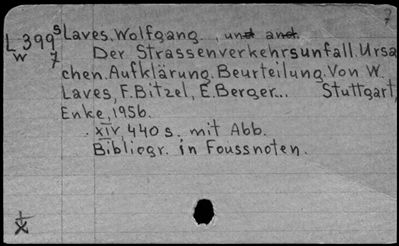 7
L 399 s Laves, Wolfgang, und and.
w 7 Der Strassenverkehrsunfall. Ursa
chen. Aufklärung. Beurteilung. Von W.
Laves, F. Bitzel, E. Berger... Stuttgart,
Enke, 1956.
XIV, 440 s. mit Abb.
Bibliogr. in Foussnoten.